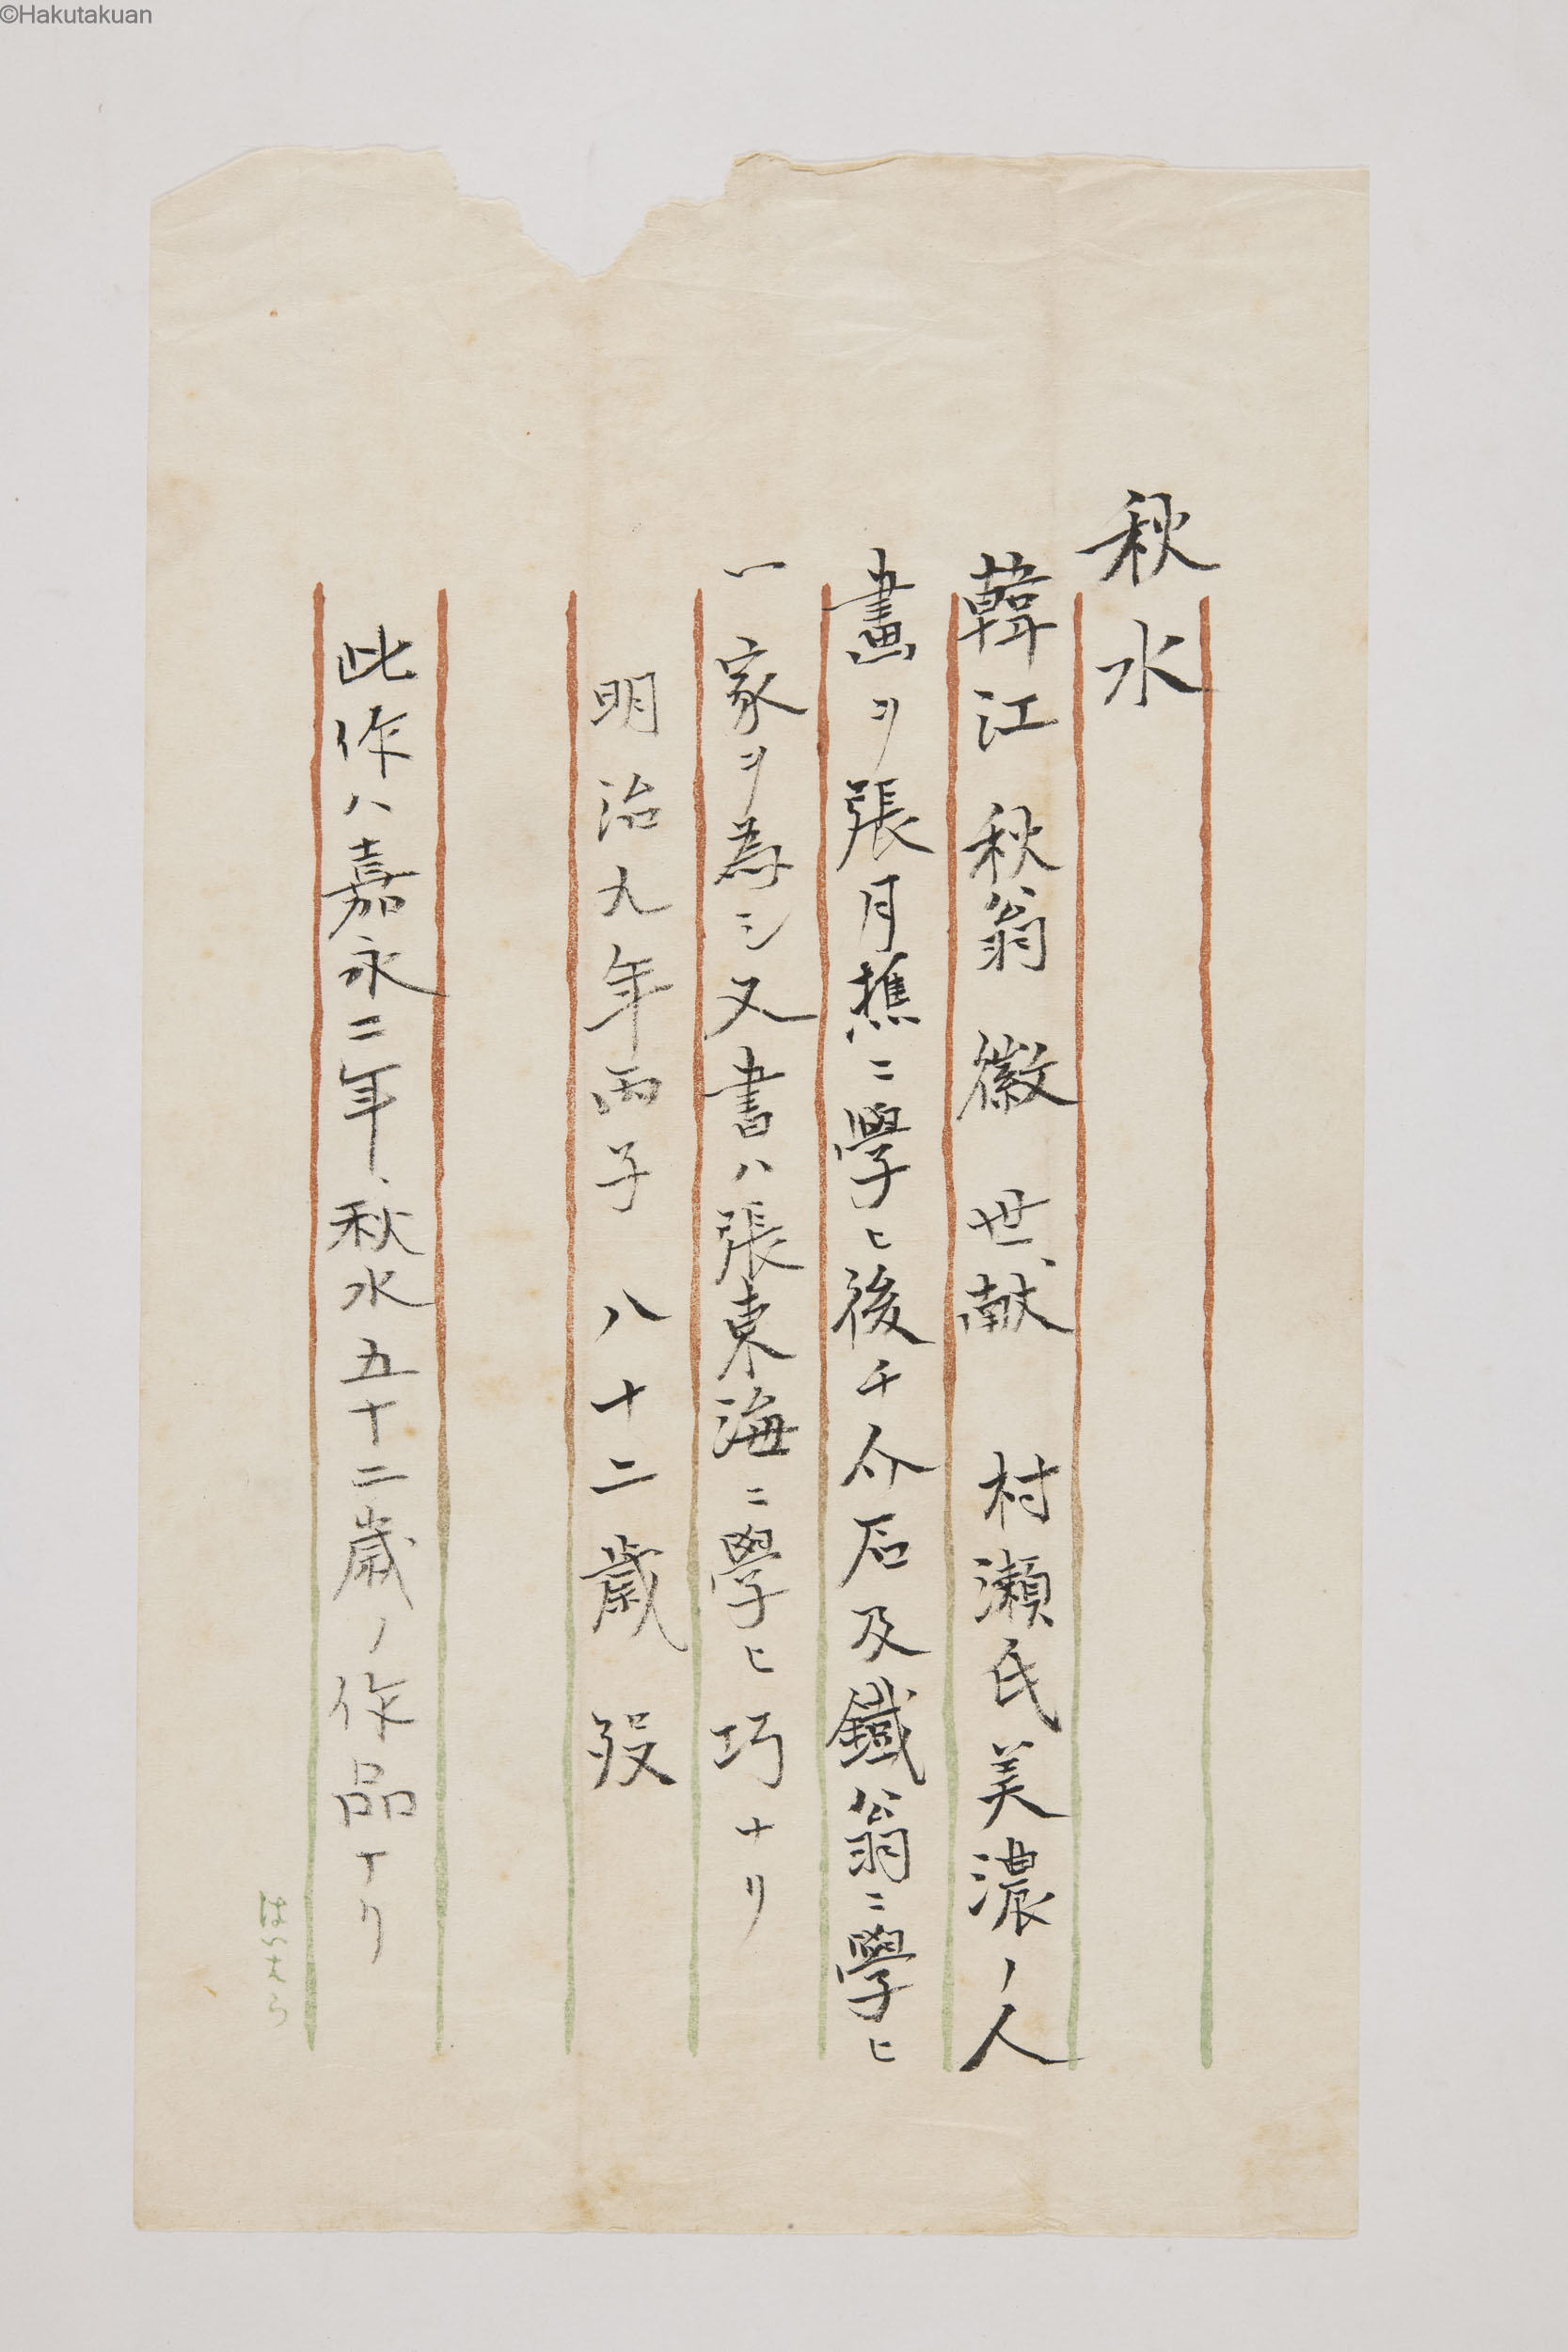 ©Hakutakuan
秋水
韓江 秋翁 徽 世献 村瀬氏美濃ノ人
畫ヲ張月樵ニ學ヒ後チ介石及鐵翁ニ學ヒ
一家ヲ為シ又書ハ張東海ニ學ヒ巧ナリ
明治九年丙子 八十二歳 歿
此作ハ嘉永二年、秋水五十二歳ノ作品ナリ